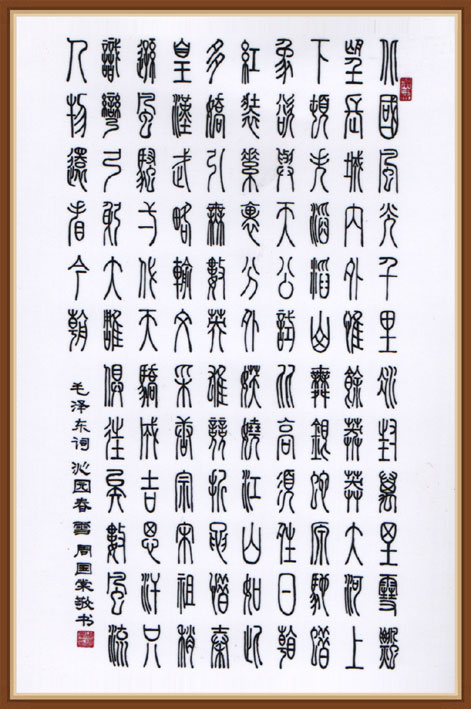 北國風光千里冰封萬里雪飄
望長城內外惟餘莽莽大河上
下頓失滔滔山舞銀蛇原馳蠟
象欲與天公試比高須晴日看
紅裝素裹分外妖嬈江山如此
多嬌引無數英雄競折腰惜秦
皇漢武略輸文采唐宗宋祖稍
遜風騷一代天驕成吉思汗只
識彎弓射大雕俱往矣數風流
人物還看今朝
毛泽东词 沁园春 雪 周国棠敬书